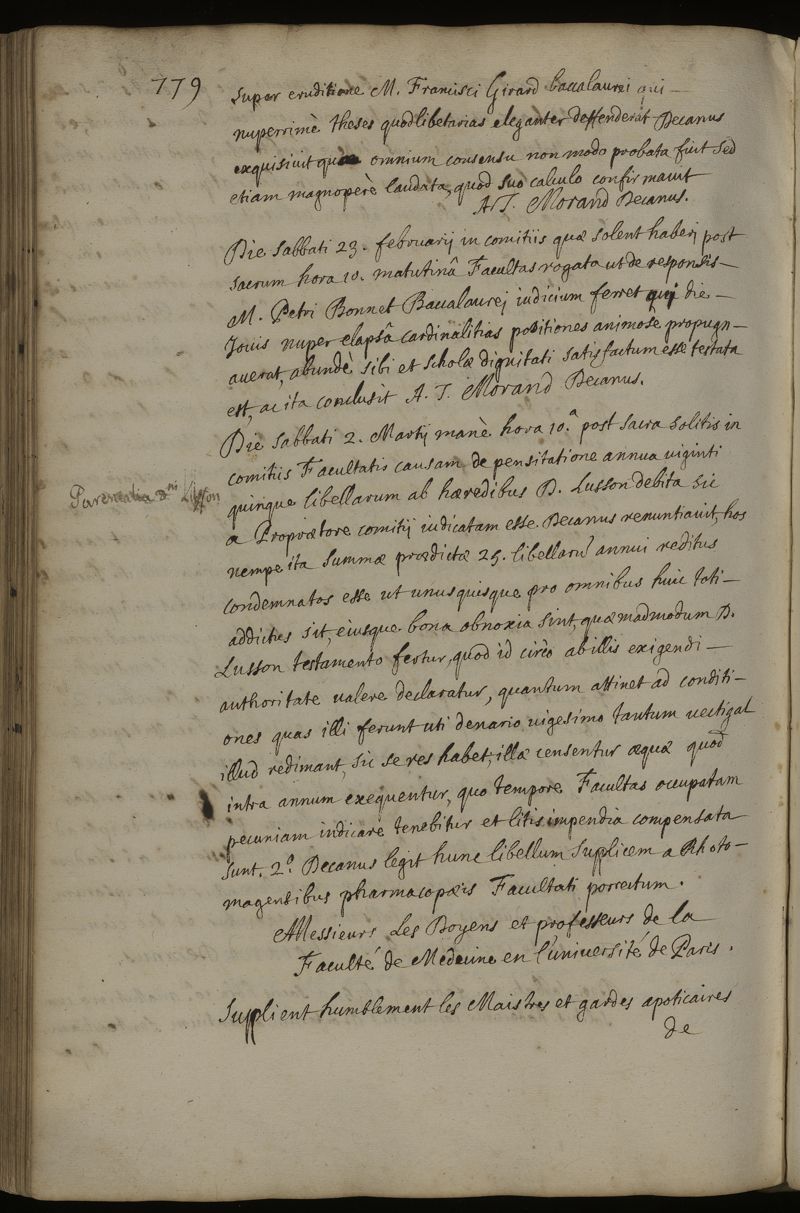 779
super eruditione M. Francisci Girard baccalaurei qui—
nuperrimè theses quodlibetarias eleganter deffenderat Decanus
exquisiuit quæ omnium consensu non modo probata fuit sed
etiam magnoperè laudata, quod suo calculo confirmauit
A. T. Morand Decanus.
Die sabbati 23. februarij in comitiis quæ solent haberj post
sacrum hora 10. matutinâ Facultas rogata ut de responsis—
M. Petri Bonnet Baccalaurej iudicium ferret qui die—
Jouis nuper elapsâ cardinalitias positiones animose propugn—
auerat, abundè sibi et scholæ dignitati satisfactum esse testata
est, ac ita conclusit A. T. Morand Decanus.
Die sabbati 2. Martij manè hora 10.ª post sacra solitis in
comitiis Facultatis causam de pensitatione annua uiginti
Parentalia D.ni Lusson
quinque libellarum ab hæredibus D. Lusson debita sic
a Proprætore comitij iudicatam esse Decanus renuntiauit, hos
nempe ita summæ prædictæ 25. libellarū annui reditus
condemnatos esse ut unusquisque pro omnibus huic toti—
addictus sit, eiusque bona obnoxia sint, quæmadmodum D.
Lusson testamento fertur, quod id circò ab illis exigendi—
authoritate ualere declaratur, quantum attinet ad conditi—
ones quas illi ferunt uti denario uigesimo tantum uectigal
illud redimant, sic se res habet; illæ censentur æquæ quod
intra annum exequentur, quo tempore Facultas occupatam
pecuniam indicare tenebitur et litis impendia compensata
sunt. 2.º Decanus legit hunc libellum supplicem a Rhoto—
magensibus pharmacopæis Facultati porrectum.
Messieurs Les Doyens et professeurs de la
Faculté de Médecine en l'université de Paris.
Supplient humblement les Maistres et gardes apoticaires
de